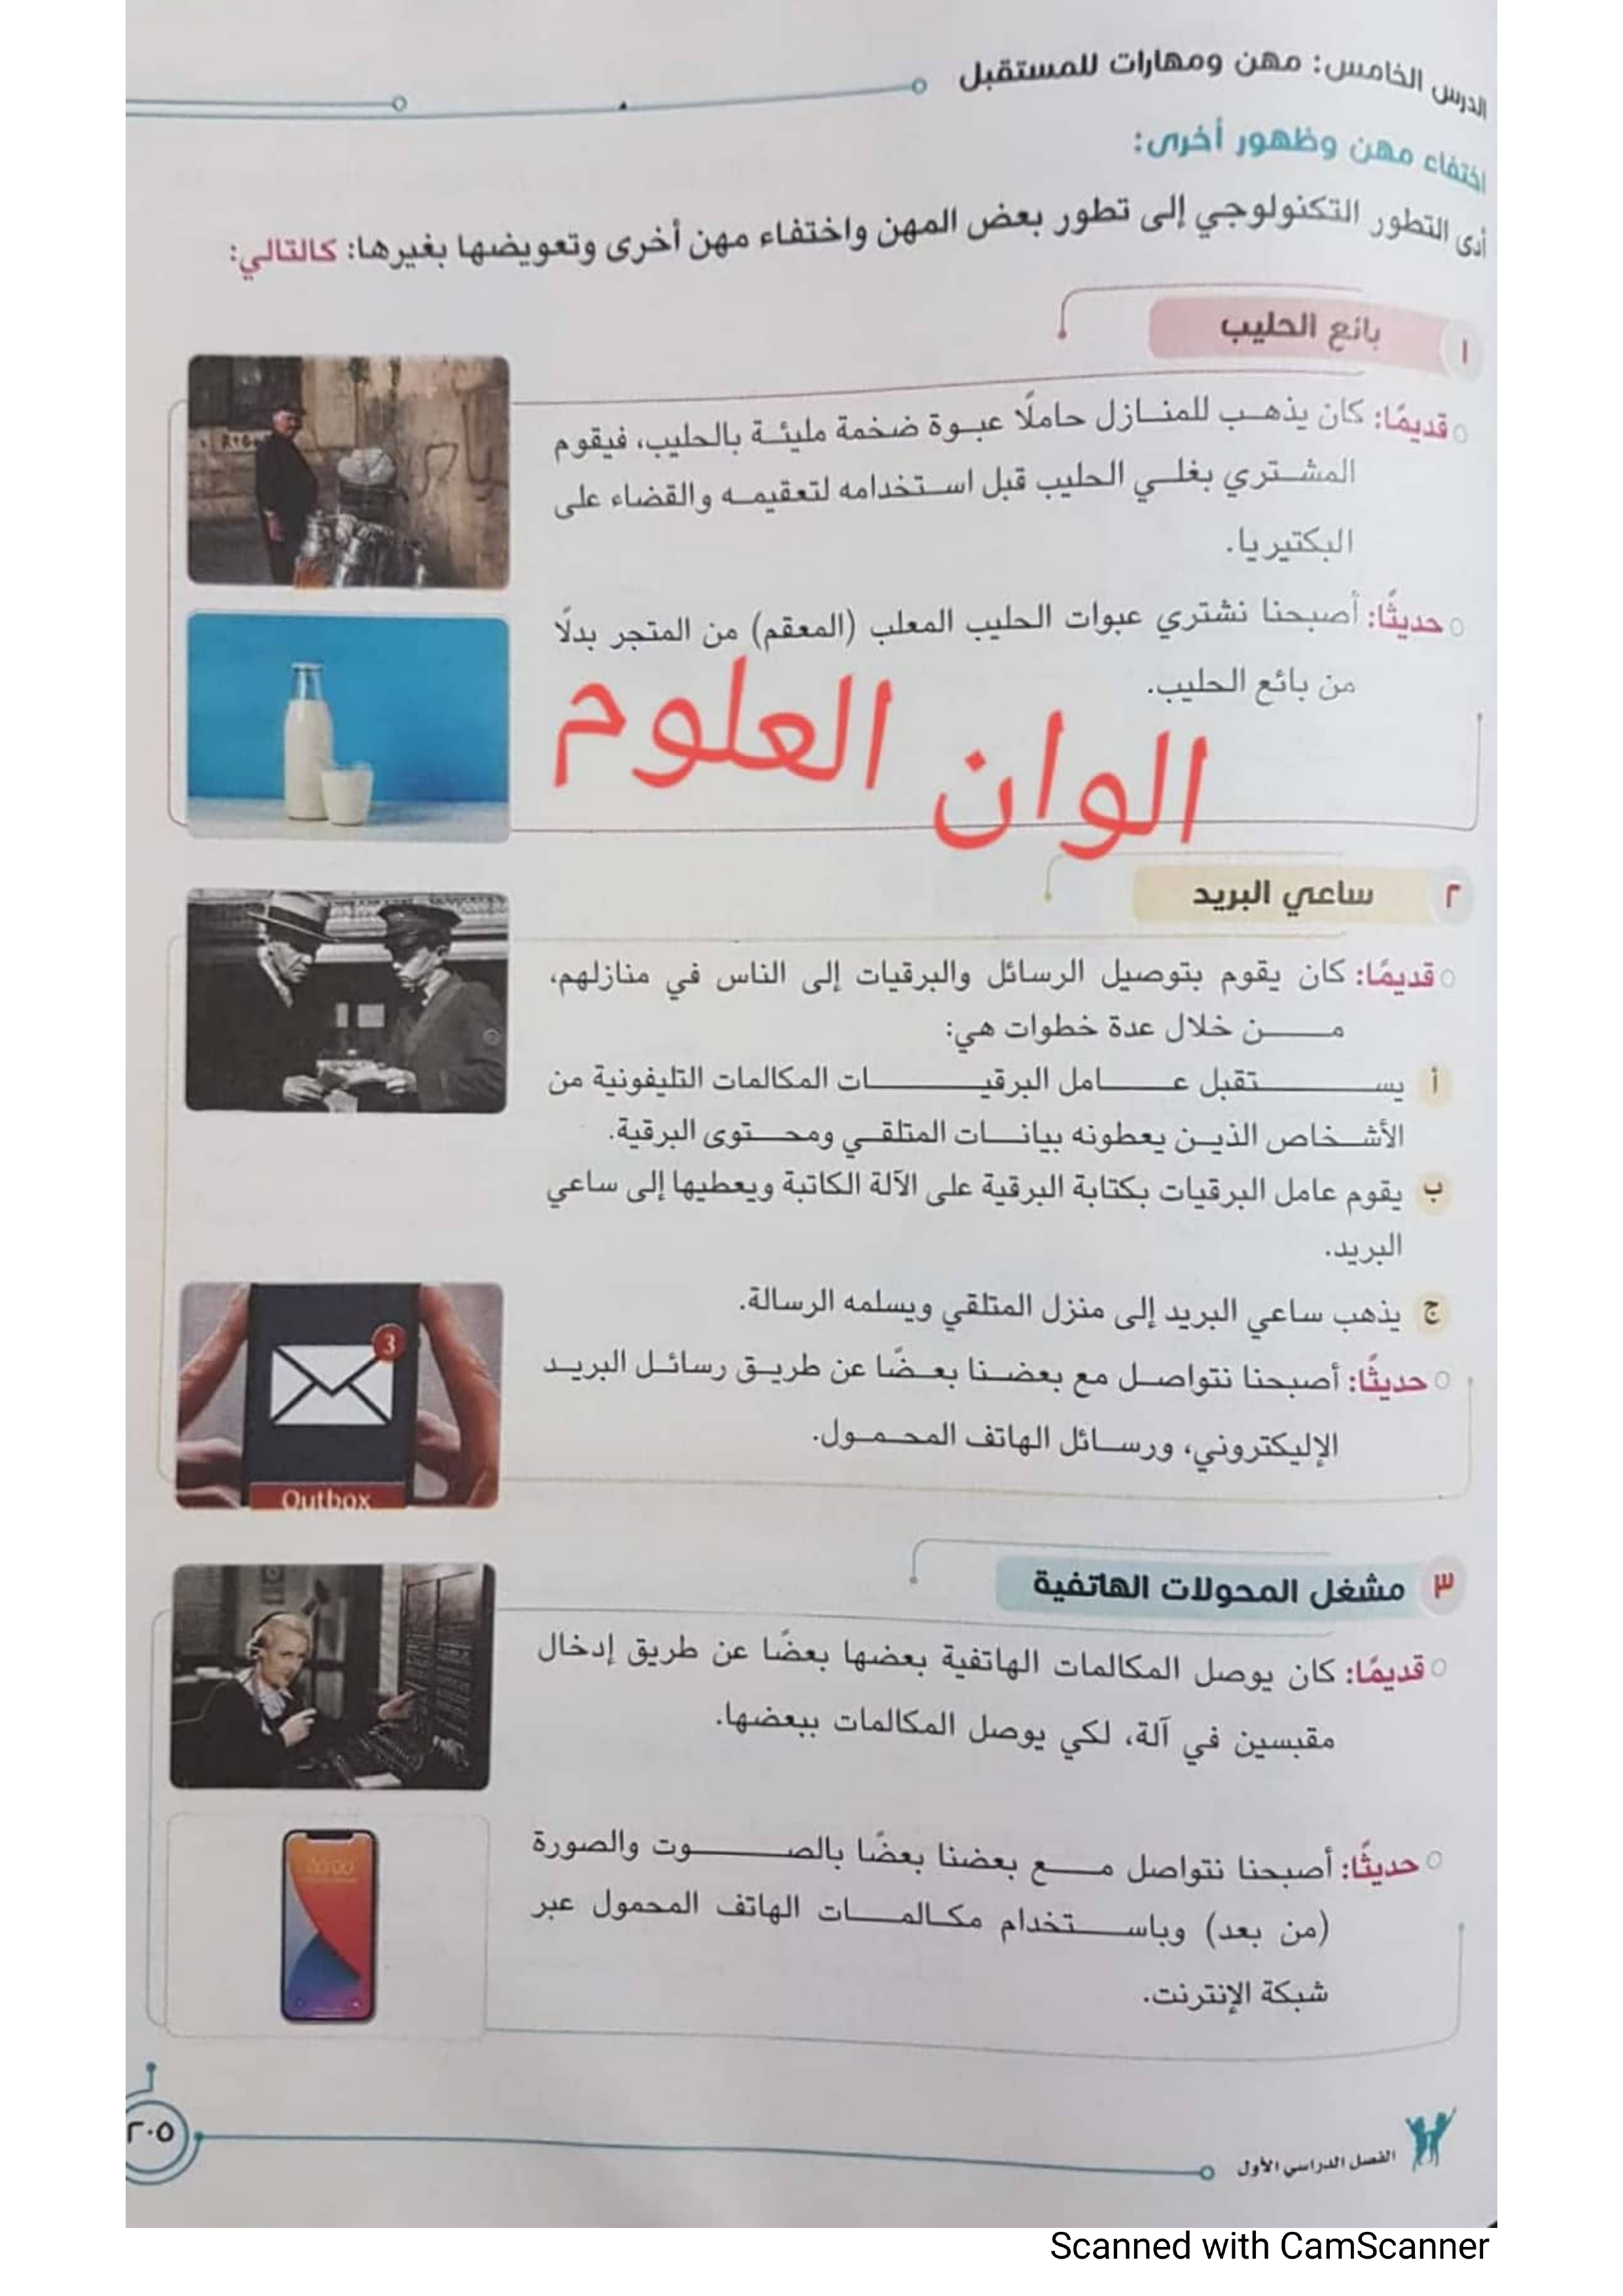 الدرس الخامس: مهن ومهارات للمستقبل
اختفاء مهن وظهور أخرى:
أدى التطور التكنولوجي إلى تطور بعض المهن واختفاء مهن أخرى وتعويضها بغيرها: كالتالي:
١ بائع الحليب
قديمًا: كان يذهب للمنازل حاملًا عبوة ضخمة مليئة بالحليب، فيقوم
المشتري بغلي الحليب قبل استخدامه لتعقيمه والقضاء على
البكتيريا.
حديثًا: أصبحنا نشتري عبوات الحليب المعلب (المعقم) من المتجر بدلًا
من بائع الحليب.
الوان العلوم
٢ ساعي البريد
قديمًا: كان يقوم بتوصيل الرسائل والبرقيات إلى الناس في منازلهم،
من خلال عدة خطوات هي:
أ يستقبل عامل البرقيات المكالمات التليفونية من
الأشخاص الذين يعطونه بيانات المتلقي ومحتوى البرقية.
ب يقوم عامل البرقيات بكتابة البرقية على الآلة الكاتبة ويعطيها إلى ساعي
البريد.
ج يذهب ساعي البريد إلى منزل المتلقي ويسلمه الرسالة.
3
حديثًا: أصبحنا نتواصل مع بعضنا بعضًا عن طريق رسائل البريد
الإليكتروني، ورسائل الهاتف المحمول.
Outbox
٣ مشغل المحولات الهاتفية
قديمًا: كان يوصل المكالمات الهاتفية بعضها بعضًا عن طريق إدخال
مقبسين في آلة، لكي يوصل المكالمات ببعضها.
حديثًا: أصبحنا نتواصل مع بعضنا بعضًا بالصوت والصورة
(من بعد) وباستخدام مكالمات الهاتف المحمول عبر
شبكة الإنترنت.
الفصل الدراسي الأول
٢٠٥
Scanned with CamScanner